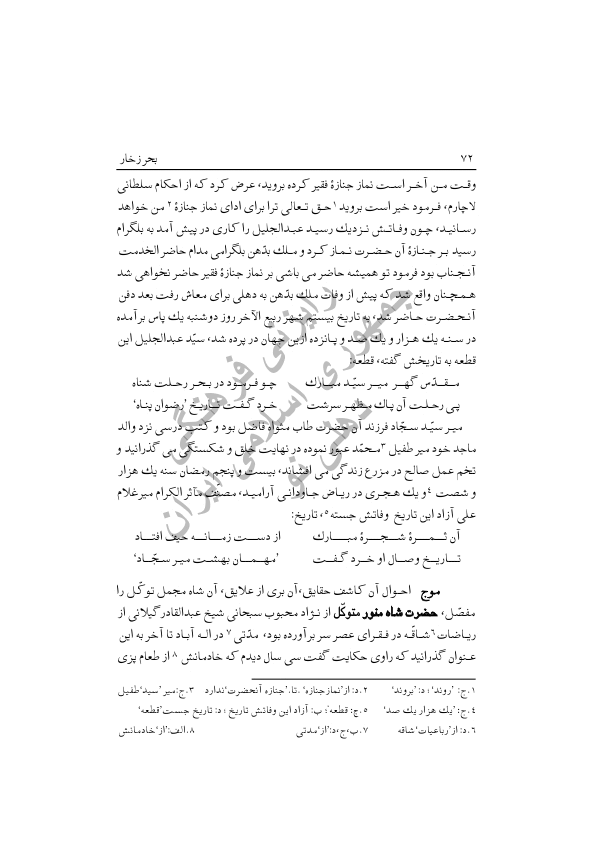 ۷۲ بحر زخار
وقت من آخر است نماز جنازۀ فقیر کرده بروید، عرض کرد که از احکام سلطانی
لاچارم، فرمود خیر است بروید۱ حق تعالی ترا برای ادای نماز جنازۀ ۲ من خواهد
رسانید، چون وفاتش نزدیك رسید عبدالجلیل را کاری در پیش آمد به بلگرام
رسید بر جنازۀ آن حضرت نماز کرد و ملك بدّهن بلگرامی مدام حاضر الخدمت
آنجناب بود فرمود تو همیشه حاضر می باشی بر نماز جنازۀ فقیر حاضر نخواهی شد
همچنان واقع شد که پیش از وفات ملك بدّهن به دهلی برای معاش رفت بعد دفن
آنحضرت حاضر شد، به تاریخ بیستم شهر ربیع الآخر روز دوشنبه یك پاس برآمده
در سنه یك هزار و یك صد و پانزده ازین جهان در پرده شد، سیّد عبدالجلیل این
قطعه به تاریخش گفته، قطعه:
مقدّس گهر میر سیّد مبارك چو فرمود در بحر رحلت شناه
پی رحلت آن پاك مطهر سرشت خرد گفت تاریخ ’رضوان پناه‘
میر سیّد سجّاد فرزند آن حضرت طاب مثواه فاضل بود و کتب درسی نزد والد
ماجد خود میر طفیل ۳محمّد عبور نموده در نهایت خلق و شکستگی می گذرانید و
تخم عمل صالح در مزرع زندگی می افشاند، بیست و پنجم رمضان سنه یك هزار
و شصت ۴و یك هجری در ریاض جاودانی آرامید، مصنّف مآثر الکرام میرغلام
علی آزاد این تاریخ وفاتش جسته۵، تاریخ:
آن ثمرۀ شجرۀ مبارك از دست زمانه حیف افتاد
تاریخ وصال او خرد گفت ’مهمان بهشت میر سجّاد‘
موج احوال آن کاشف حقایق،آن بری از علایق، آن شاه مجمل توکّل را
مفصّل، حضرت شاه منور متوکّل از نژاد محبوب سبحانی شیخ عبدالقادرگیلانی از
ریاضات۶شاقّه در فقرای عصر سر برآورده بود، مدّتی ۷ در اله آباد تا آخر به این
عنوان گذرانید که راوی حکایت گفت سی سال دیدم که خادمانش ۸ از طعام پزی
۱.ج: ’روند‘ ؛ د: ’بروند‘ ۲.د: از’نمازجنازه‘ .تا.’جنازه آنحضرت‘ندارد ۳.ج:میر’سید‘طفیل
۴.ج: ’یك هزار یك صد‘ ۵.ج: قطعه؛ ب: آزاد این وفاتش تاریخ ؛ د: تاریخ جست’قطعه‘
۶.د: از’رباعیات‘شاقه ۷.ب،ج،د:’از‘مدتی ۸.الف:’از‘خادمانش
رایزنی فرهنگی
جمهوری اسلامی ایران
دهلی نو